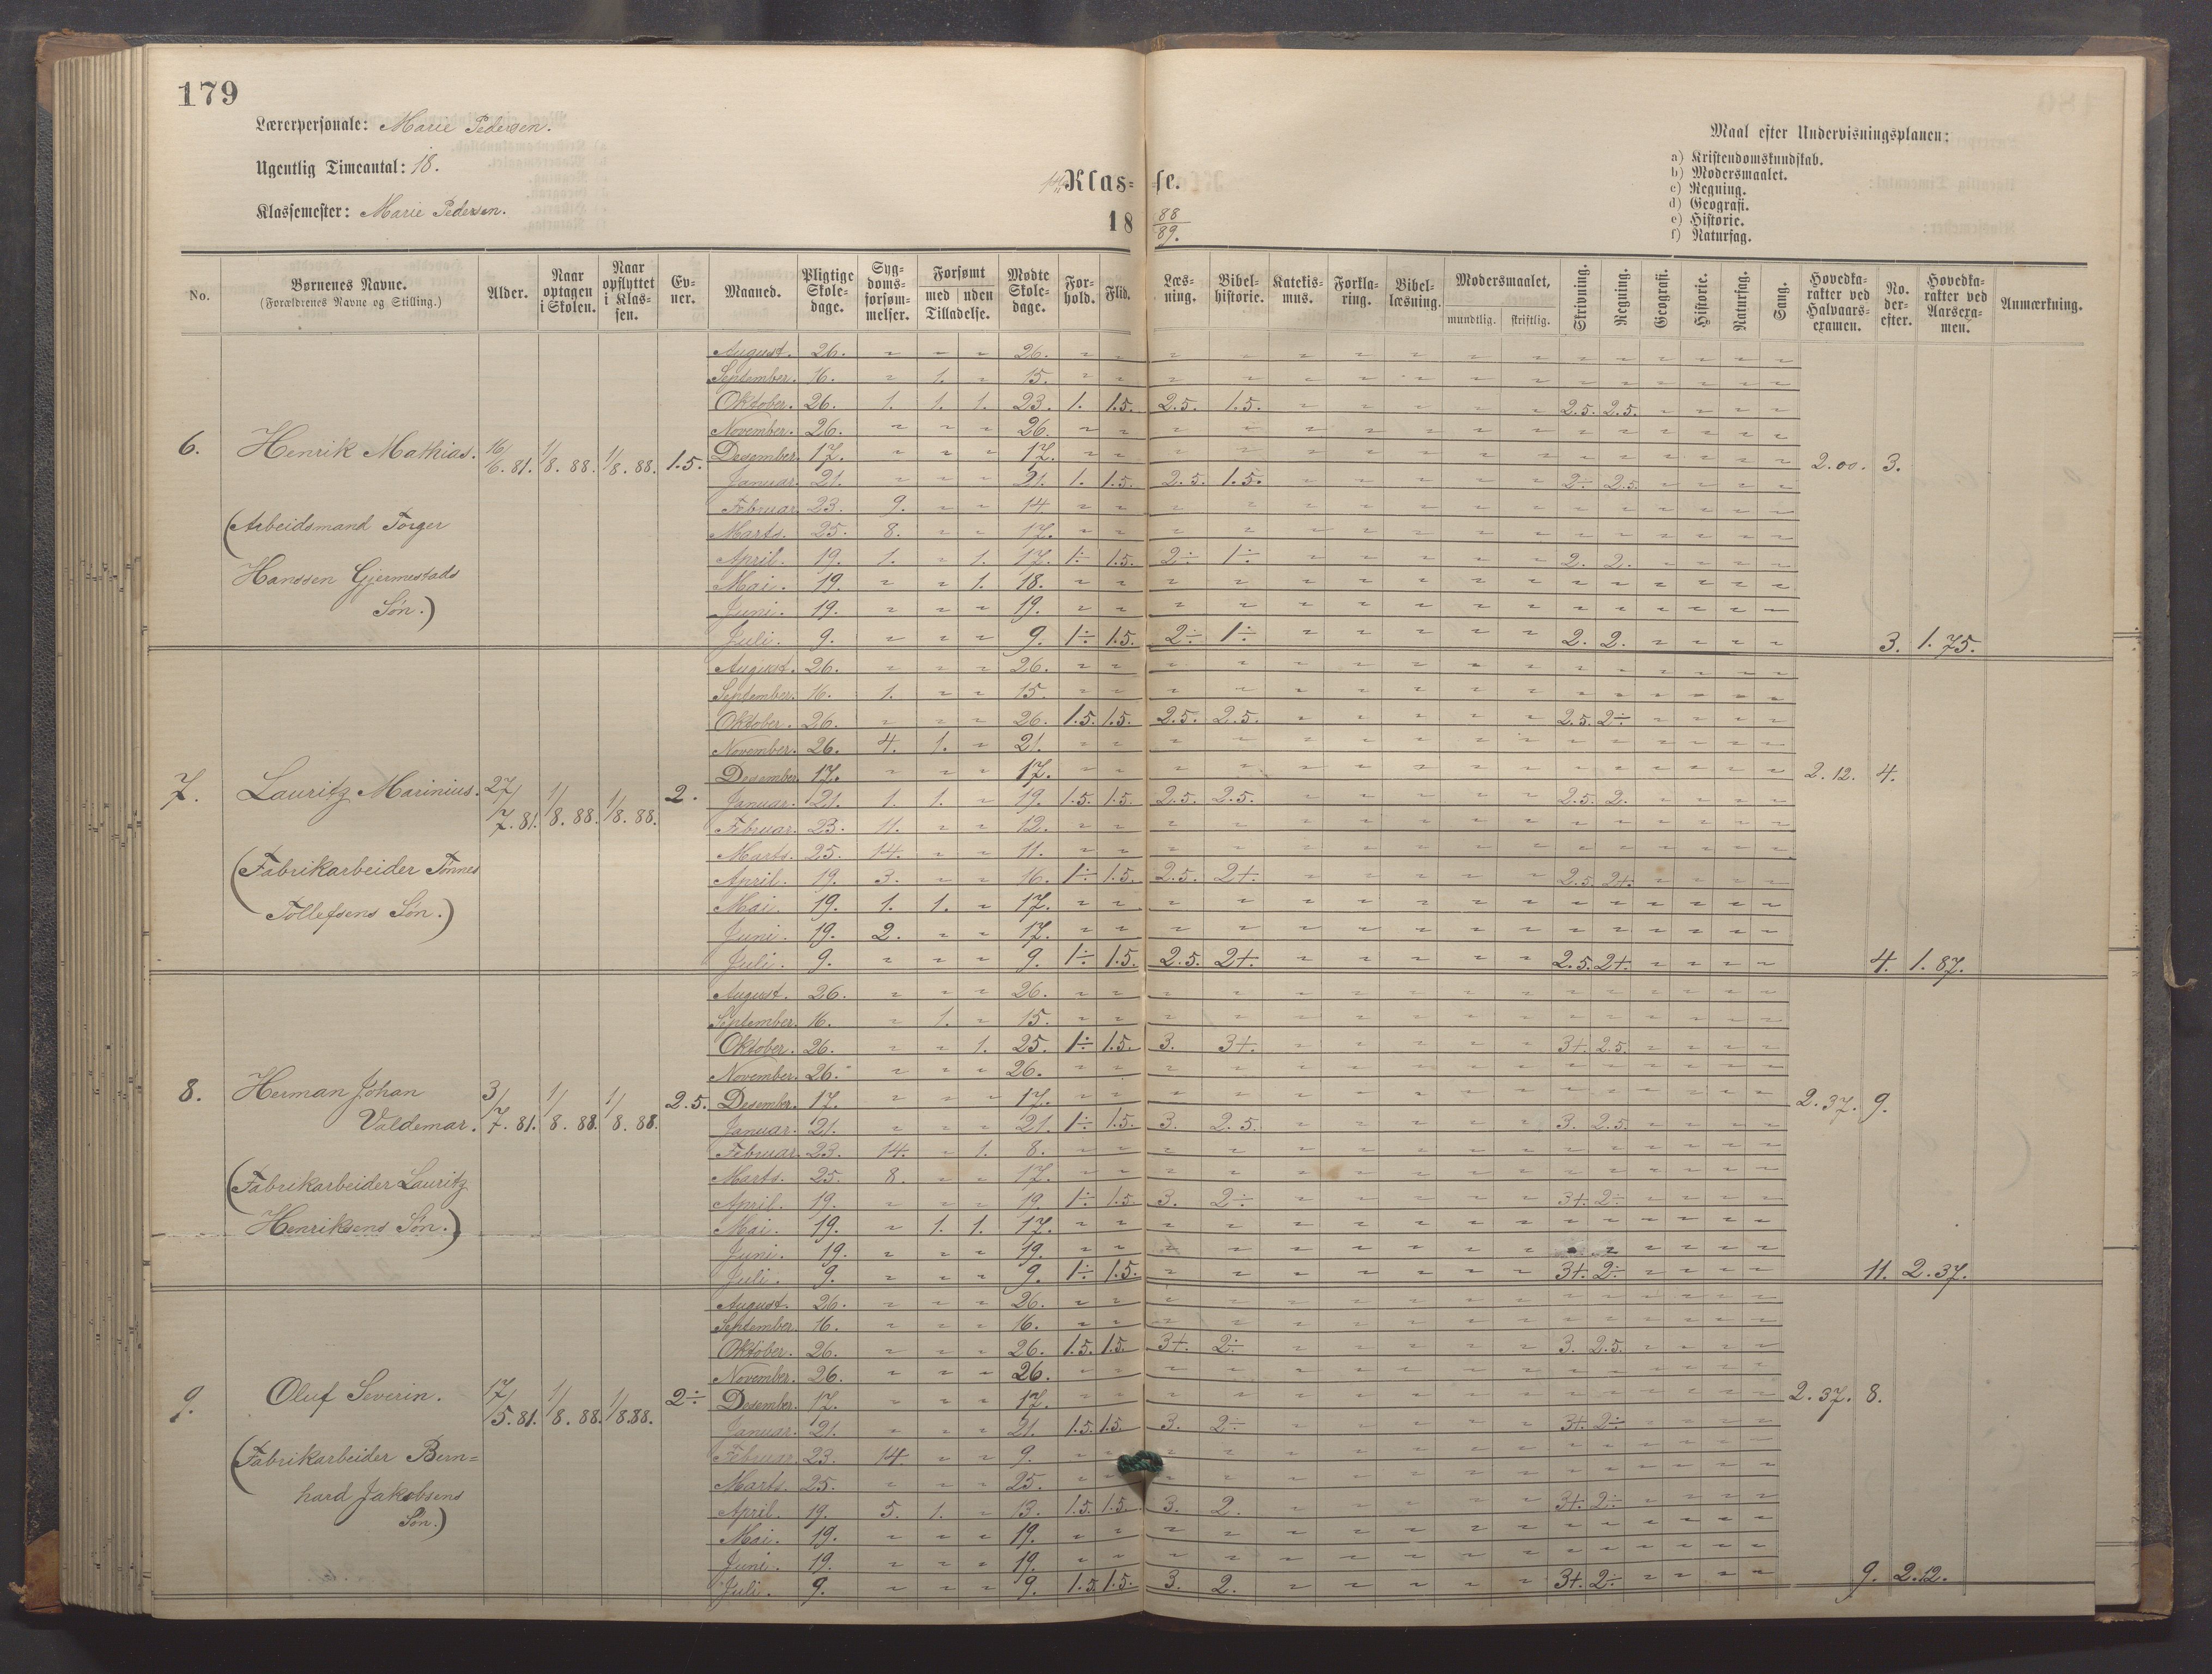 179
Lærerpersonale: Marie Pedersen.
Ugentlig Timeantal: 18.
Klassemester: Marie Pedersen.
Klas- se.
18 88/89.
Maal efter Undervisningsplanen:
a) Kristendomskundskab.
b) Modersmaalet.
c) Regning.
d) Geografi.
e) Historie.
f) Naturfag.
No. Børnenes Navne. (Forældrenes Navne og Stilling.) Alder. Naar optagen i Skolen. Naar opflyttet i Klassen. Evner. Maaned. Pligtige Skoledage. Sygdomsforsømmelser. Forsømt med uden Tilladelse. Mødte Skoledage. Forhold. Flid. Læsning. Bibelhistorie. Katekismus. Forklaring. Bibellæsning. Modersmaalet, mundtlig. skriftlig. Skrivning. Regning. Geografi. Historie. Naturfag. Sang. Hovedkarakter ved Halvaarsexamen. No. derefter. Hovedkarakter ved Aarsexamen. Anmærkning.
6. Henrik Mathias. 16/6. 81. 1/8. 88. 1/8. 88. 1.5. 2.00. 3.
(Arbeidsmand Torger
Hanssen Gjermestads
Søn.)
August. 26. " " " 26. " "
September. 16. " 1. " 15. " "
Oktober. 26. 1. 1. 1. 23. 1. 1.5. 2.5. 1.5. 2.5. 2.5.
November. 26. " " " 26. " "
Desember. 17. " " " 17. " "
Januar. 21. " " " 21. 1. 1.5. 2.5. 1.5. 2÷ 2.5.
Februar. 23. 9. " " 14. " "
Marts. 25. 8. " " 17. " "
April. 19. 1. " 1. 17. 1÷ 1.5. 2÷ 1÷ 2. 2.
Mai. 19. " " 1. 18. " "
Juni. 19. " " " 19. " "
Juli. 9. " " " 9. 1÷ 1.5. 2÷ 1÷ 2. 2. 3. 1.75.
7. Lauritz Marinius. 27/7. 81. 1/8. 88. 1/8. 88. 2. 2.12. 4.
(Fabrikarbeider Tønnes
Tollefsens Søn.)
August. 26. " " " 26. " "
September. 16. 1. " " 15. " "
Oktober. 26. " " " 26. 1.5. 1.5. 2.5. 2.5. 2.5. 2÷
November. 26. 4. 1. " 21. " "
Desember. 17. " " " 17. " "
Januar. 21. 1. 1. " 19. 1.5. 1.5. 2.5. 2.5. 2.5. 2.
Februar. 23. 11. " " 12. " "
Marts. 25. 14. " " 11. " "
April. 19. 3. " " 16. 1÷ 1.5. 2.5. 2+. 2.5. 2+.
Mai. 19. 1. 1. " 17. " "
Juni. 19. 2. " " 17. " "
Juli. 9. " " " 9. 1÷ 1.5. 2.5. 2+. 2.5. 2+. 4. 1.87.
8. Herman Johan
Valdemar. 3/7. 81. 1/8. 88. 1/8. 88. 2.5. 2.37. 9.
(Fabrikarbeider Lauritz
Henriksens Søn.)
August. 26. " " " 26. " "
September. 16. " 1. " 15. " "
Oktober. 26. " " 1. 25. 1÷ 1.5. 3. 3+. 3+. 2.5.
November. 26. " " " 26. " "
Desember. 17. " " " 17. " "
Januar. 21. " " " 21. 1÷ 1.5. 3. 2.5. 3. 2.5.
Februar. 23. 14. " 1. 8. " "
Marts. 25. 8. " " 17. " "
April. 19. " " " 19. 1÷ 1.5. 3. 2÷ 3+. 2÷
Mai. 19. " 1. 1. 17. " "
Juni. 19. " " " 19. " "
Juli. 9. " " " 9. 1÷ 1.5. " " 3+. 2÷ 11. 2.37.
9. Oluf Severin. 17/5. 81. 1/8. 88. 1/8. 88. 2÷ 2.37. 8.
(Fabrikarbeider Bern=
hard Jakobsens
Søn.)
August. 26. " " " 26. " "
September. 16. " " " 16. " "
Oktober. 26. " " " 26. 1.5. 1.5. 3+. 2÷ 3. 2.5.
November. 26. " " " 26. " "
Desember. 17. " " " 17. " "
Januar. 21. " " " 21. 1.5. 1.5. 3. 2÷ 3+. 2÷
Februar. 23. 14. " " 9. " "
Marts. 25. " " " 25. " "
April. 19. 5. 1. " 13. 1.5. 1.5. 3. 2. 3+. 2÷
Mai. 19. " " " 19. " "
Juni. 19. " " " 19. " "
Juli. 9. " " " 9. 1.5. 1.5. 3. 2. 3+. 2÷ 9. 2.12.